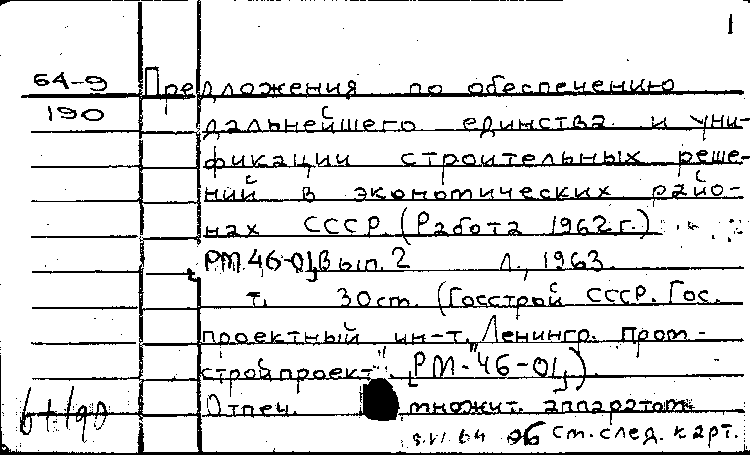 1
64-9 Предложения по обеспечению
190 дальнейшего единства и уни-
фикации строительных реше-
ний в экономических райо-
нах СССР. (Работа 1962г.)
РМ 46-01, Вып. 2 Л., 1963.
т. 30ст. (Госстрой СССР. Гос.
проектный ин-т. Ленингр. Пром-
стройпроект". РМ-46-01)
Отпеч. множит. аппаратом
64/90
64 об См. след. карт.